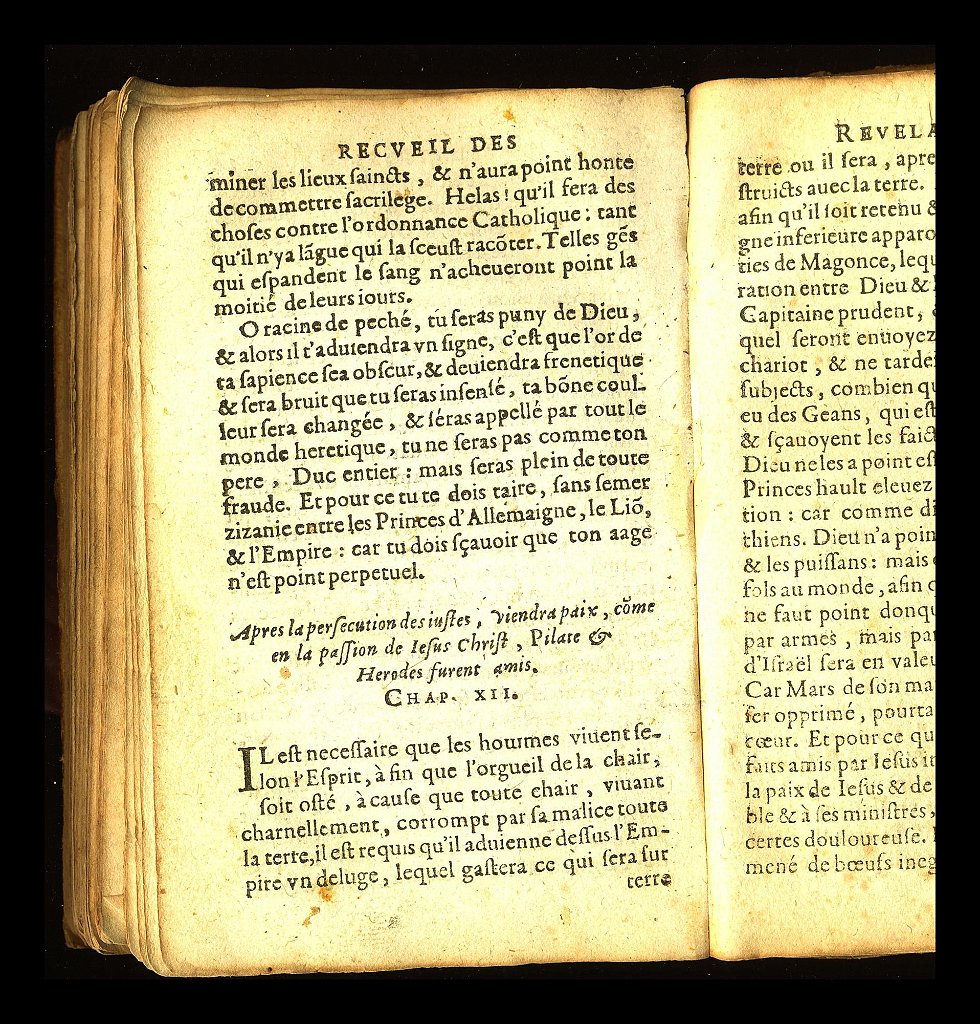 RECVEIL DES
miner les lieux ſaincts, & n'aura point honte
de commettre ſacrilege. Helas! qu'il ſera des
choſes contre l'ordonnance Catholique: tant
qu'il n'ya lãgue qui la ſceuſt racõter. Telles gẽs
qui eſpandent le ſang n'acheueront point la
moitié de leurs iours.
O racine de peché, tu ſeras puny de Dieu,
& alors il t'aduiendra vn ſigne, c'eſt que l'or de
ta ſapience ſea obſcur, & deuiendra frenetique
& ſera bruit que tu ſeras inſenſé, ta bõne coul-
leur ſera changée, & ſéras appellé par tout le
monde heretique, tu ne ſeras pas comme ton
pere, Duc entier: mais ſeras plein de toute
fraude. Et pour ce tu te dois taire, ſans ſemer
zizanie entre les Princes d'Allemaigne, le Liõ,
& l'Empire: car tu dois ſçauoir que ton aage
n'eſt point perpetuel.
Apres la perſecution des iuſtes, viendra paix, cõme
en la paſſion de Ieſus Chriſt, Pilate &
Herodes furent amis.
CHAP. XII.
IL eſt neceſſaire que les hommes viuent ſe-
lon l'Eſprit, à fin que l'orgueil de la chair,
ſoit oſté, à cauſe que toute chair, viuant
charnellement, corrompt par ſa malice toute
la terre, il eſt requis qu'il aduienne deſſus l'Em-
pire vn deluge, lequel gaſtera ce qui ſera ſur
terre
REVELA
terre ou il ſera, apre
ſtruicts auec la terre.
afin qu'il ſoit retenu &
gne inferieure apparo
ties de Magonce, lequ
ration entre Dieu &
Capitaine prudent,
quel ſeront enuoyez
chariot, & ne tarde
ſubjects, combien qu
eu des Geans, qui eſt
& ſçauoyent les faict
Dieu ne les a point eſ
Princes hault eleuez
tion: car comme di
thiens. Dieu n'a poin
& les puiſſans: mais
fols au monde, afin q
ne faut point donqu
par armes, mais par
d'Iſraël ſera en valeu
Car Mars de ſon ma
fer opprimé, pourta
cœur. Et pour ce qu
faits amis par Ieſus
la paix de Ieſus & de
ble & à ſes miniſtres,
certes douloureuſe.
mené de bœufs ineg